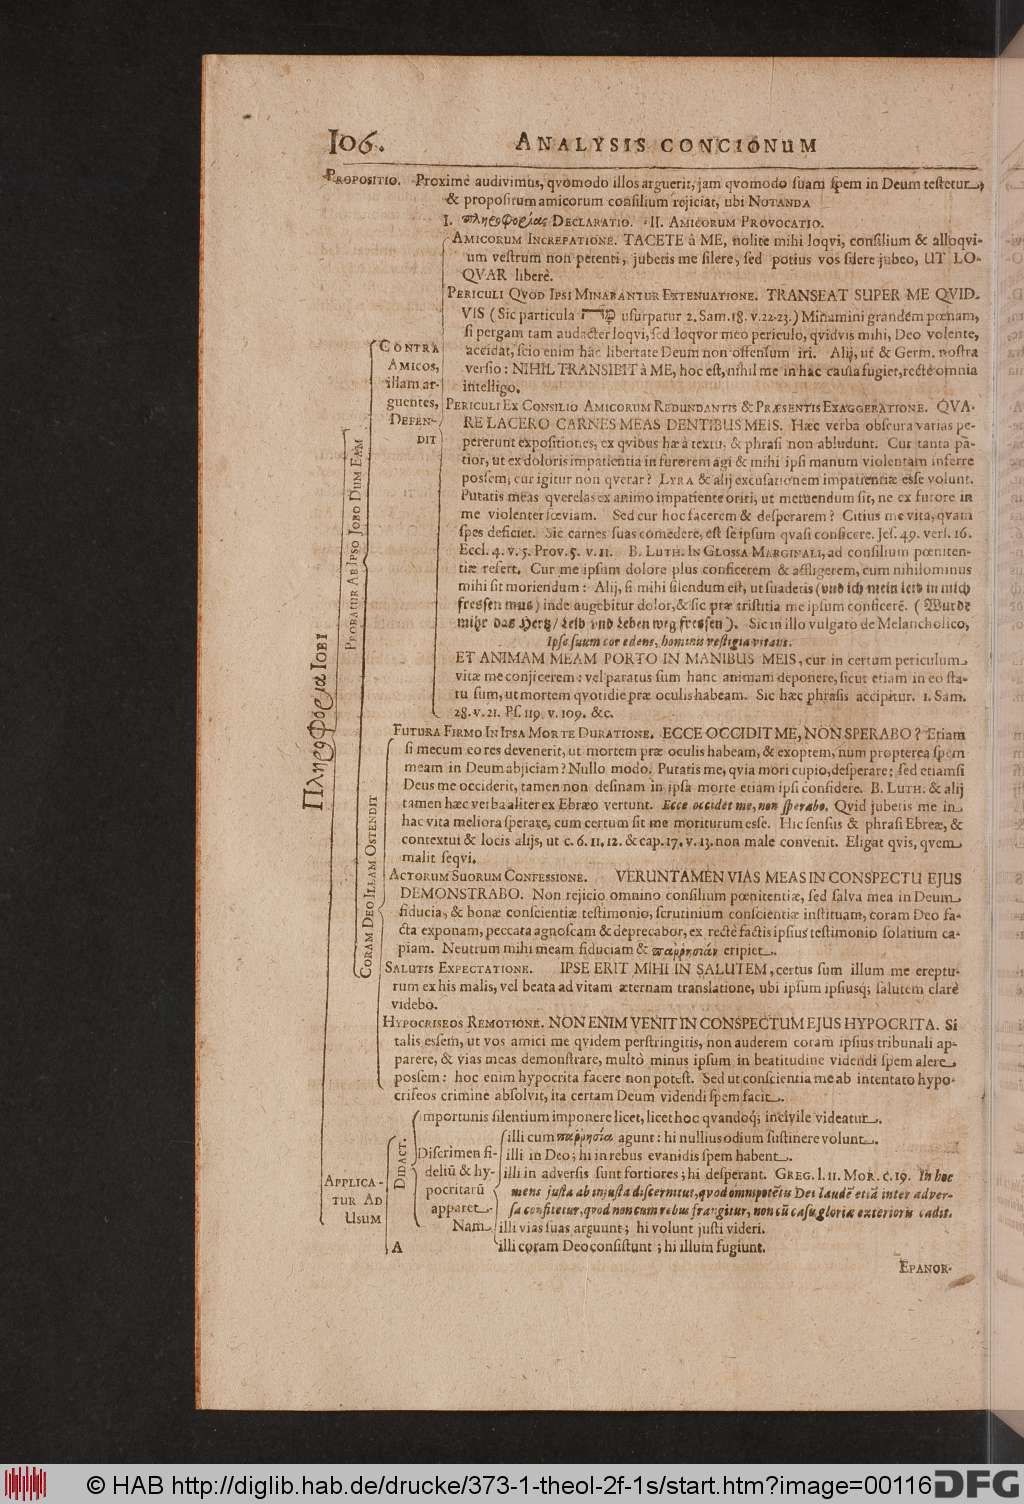 106.
ANALYSIS CONCIONUM
PROPOSITIO. Proximè audivimus, qvomodo illos arguerit, jam qvomodo suam spem in Deum testetur,
& propositum amicorum consilium rejiciat, ubi NOTANDA
I. πληροφορίας DECLARATIO. II. AMICORUM PROVOCATIO.
AMICORUM INCREPATIONE. TACETE à ME, nolite mihi loqvi, consilium & alloqvi-
um vestrum non petenti, jubetis me silere, sed potius vos silere jubeo, UT LO-
QVAR liberè.
PERICULI QVOD IPSI MINABANTUR EXTENUATIONE. TRANSEAT SUPER ME QVID-
VIS (Sic particula מה usurpatur 2. Sam. 18. v. 22-23.) Minamini grandem pœnam,
si pergam tam audacter loqvi, sed loqvor meo periculo, qvidvis mihi, Deo volente,
accidat, scio enim hâc libertate Deum non offensum iri. Alij, ut & Germ. nostra
versio: NIHIL TRANSIBIT à ME, hoc est, nihil me in hac causa fugiet, rectè omnia
intelligo.
CONTRA
AMICOS,
illam ar-
guentes,
DEFEN-
DIT
PERICULI EX CONSILIO AMICORUM REDUNDANTIS & PRÆSENTIS EXAGGERATIONE. QVA-
RE LACERO CARNES MEAS DENTIBUS MEIS. Hæc verba obscura varias pe-
pererunt expositiones, ex qvibus hæ à textu, & phrasi non abludunt. Cur tanta pa-
tior, ut ex doloris impatientia in furorem agi & mihi ipsi manum violentam inferre
possem; cur igitur non qverar? LYRA & alij excusationem impatientiæ esse volunt.
Putatis meas qverelas ex animo impatiente oriri, ut metuendum sit, ne ex furore in
me violenter sæviam. Sed cur hoc facerem & desperarem? Citius me vita, qvam
spes deficiet. Sic carnes suas comedere, est se ipsum quasi conficere. Jes. 49. vers. 16.
Eccl. 4. v. 5. Prov. 5. v. 11. B. LUTH. IN GLOSSA MARGINALI, ad consilium pœniten-
tiæ refert. Cur me ipsum dolore plus conficerem & affligerem, cum nihilominus
mihi sit moriendum: Alij, si mihi silendum est, ut suadetis (und ich mein leid in mich
fressen mus) inde augebitur dolor, & sic præ tristitia me ipsum conficerē. (Würde
mihr das Hertz/ Leib und Leben weg fressen). Sic in illo vulgato de Melancholico,
Ipse suum cor edens, hominis vestigia vitans.
ET ANIMAM MEAM PORTO IN MANIBUS MEIS, cur in certum periculum
vitæ me conjicerem: vel paratus sum hanc animam deponere, sicut etiam in eo sta-
tu sum, ut mortem qvotidie præ oculis habeam. Sic hæc phrasis accipitur. 1. Sam.
28. v. 21. Ps. 119. v. 109. &c.
PROBATUR AB IPSO JOBO DUM EAM
Πληροφορία IOBI
FUTURA FIRMO IN IPSA MORTE DURATIONE. ECCE OCCIDIT ME, NON SPERABO? Etiam
si mecum eo res devenerit, ut mortem præ oculis habeam, & exoptem, num propterea spem
meam in Deum abjiciam? Nullo modo. Putatis me, qvia mori cupio, desperare; sed etiamsi
Deus me occiderit, tamen non desinam in ipsa morte etiam ipsi confidere. B. LUTH. & alij
tamen hæc verba aliter ex Ebræo vertunt. Ecce occidet me, non sperabo. Qvid jubetis me in
hac vita meliora sperare, cum certum sit me moriturum esse. Hic sensus & phrasi Ebreæ, &
contextui & locis alijs, ut c. 6. 11. 12. & cap. 17. v. 13. non male convenit. Eligat qvis, qvem
malit seqvi.
CORAM DEO ILLAM OSTENDIT
ACTORUM SUORUM CONFESSIONE. VERUNTAMEN VIAS MEAS IN CONSPECTU EJUS
DEMONSTRABO. Non rejicio omnino consilium pœnitentiæ, sed salva mea in Deum
fiducia, & bonæ conscientiæ testimonio, scrutinium conscientiæ instituam, coram Deo fa-
cta exponam, peccata agnoscam & deprecabor, ex rectè factis ipsius testimonio solatium ca-
piam. Neutrum mihi meam fiduciam & παῤῥησίαν eripiet.
SALUTIS EXPECTATIONE. IPSE ERIT MIHI IN SALUTEM, certus sum illum me ereptu-
rum ex his malis, vel beata ad vitam æternam translatione, ubi ipsum ipsiusq; salutem clarè
videbo.
HYPOCRISEOS REMOTIONE. NON ENIM VENIT IN CONSPECTUM EJUS HYPOCRITA. Si
talis essem, ut vos amici me qvidem perstringitis, non auderem coram ipsius tribunali ap-
parere, & vias meas demonstrare, multò minus ipsum in beatitudine videndi spem alere,
possem: hoc enim hypocrita facere non potest. Sed ut conscientia me ab intentato hypo-
criseos crimine absolvit, ita certam Deum videndi spem facit.
APPLICA-
TUR AD
USUM
DIDACT.
importunis silentium imponere licet, licet hoc qvandoq; incivile videatur.
Discrimen fi-
deliū & hy-
pocritarū
apparet.
Nam
illi cum παῤῥησία agunt: hi nullius odium sustinere volunt.
illi in Deo; hi in rebus evanidis spem habent.
illi in adversis sunt fortiores; hi desperant. GREG. l. 11. MOR. c. 19. In hoc
mens justa ab injusta discernitur, qvod omnipotētis Dei laudē etiā inter adver-
sa confitetur, qvod non cum rebus frangitur, non cū casu gloriæ exterioris cadit.
illi vias suas arguunt; hi volunt justi videri.
illi coram Deo consistunt; hi illum fugiunt.
A
EPANOR-
© HAB http://diglib.hab.de/drucke/373-1-theol-2f-1s/start.htm?image=00116
DFG